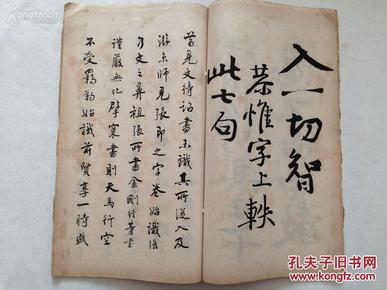 入一切智
恭惟字上軼
此七句
昔見文待詔書未識其所從入及
游京師見張即之字卷始識
待
文之鼻祖張所書金剛經等
謹嚴無比擘窠書則天馬行空
不受羈勒始識前賢享一時盛
孔夫子旧书网
www.kongfz.com